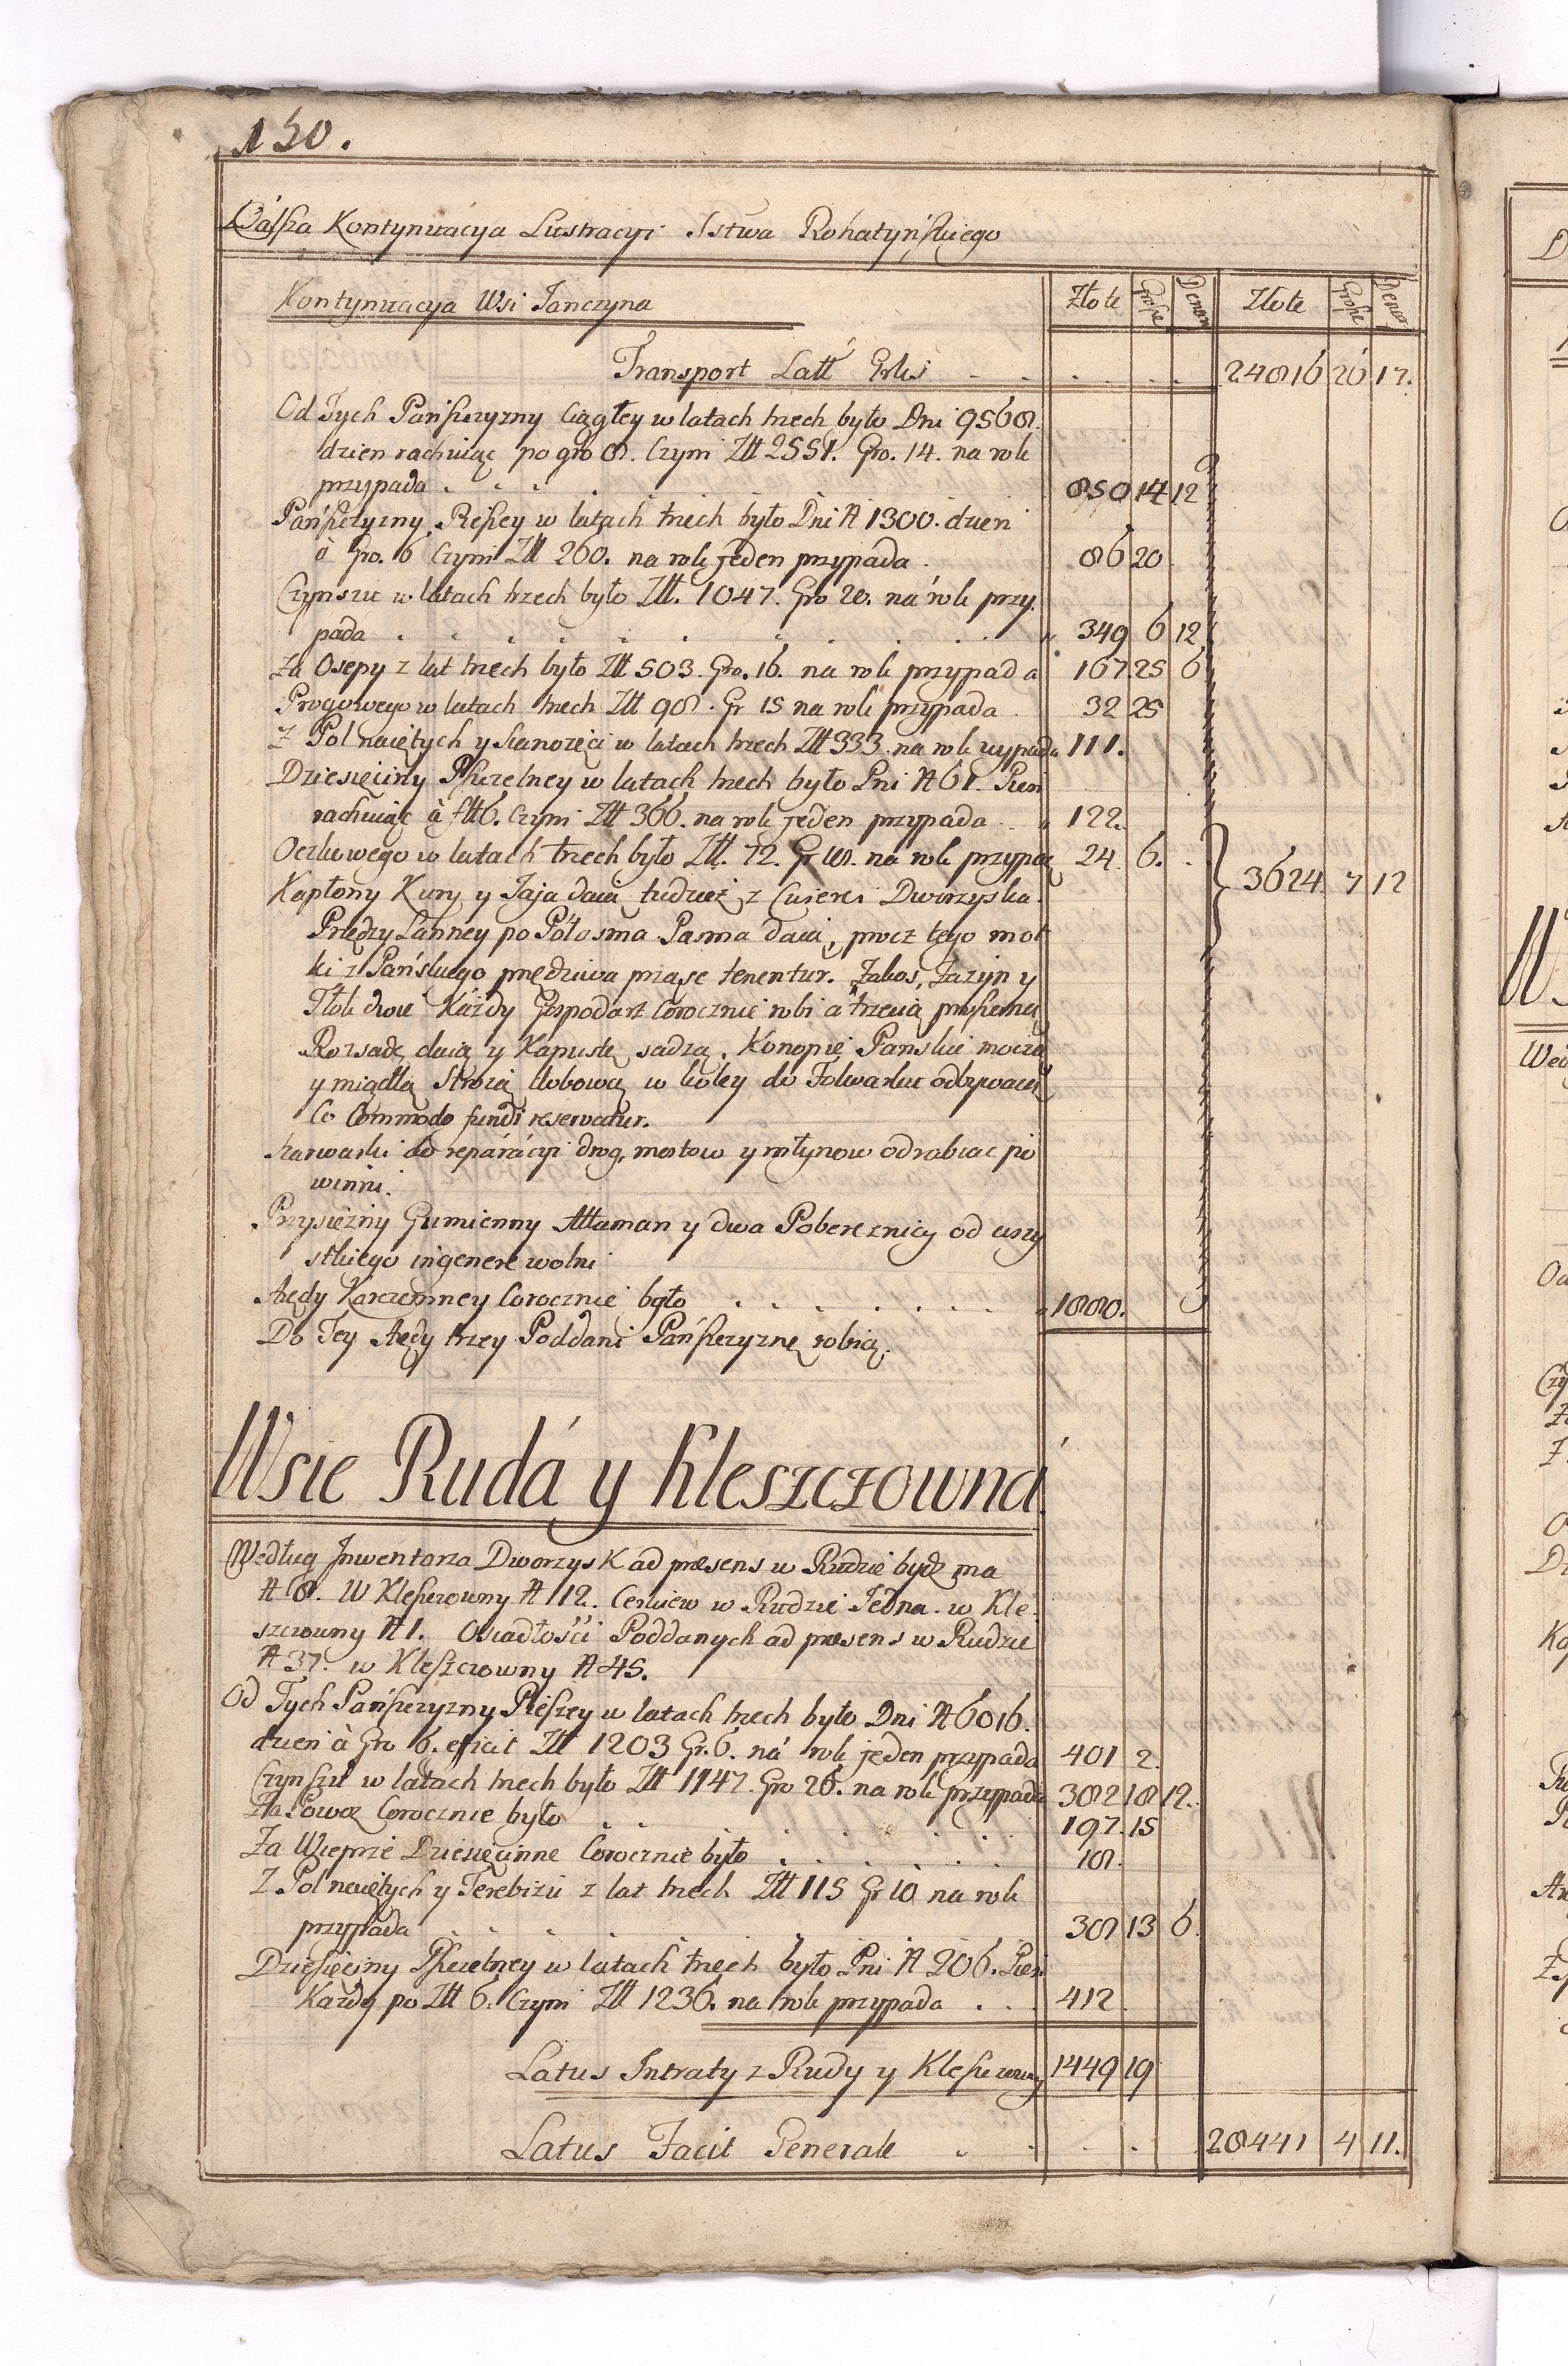 150.
Dalsza Kontynuacya Lustracyi Sstwa Rohatyńskiego
Kontynuacya Wsi Janczyna
Złote Grosze Denar Złote Grosze Denar
Transport Latt Grlis . . . . . . 24816 26 17.
Od Tych Pańszczyzny Ciągłey w latach trzech było Dni 9568.
dzien rachuiąc po gro 8. Czyni Złł 2551. Gro. 14. na rok
przypada . . . . 850 14 12
Pańszczyzny Pieszey w latach trzech było Dni N 1300. dzień
à Gro. 6 Czyni Złł 260. na rok jeden przypada . 86 20
Czynszu w latach trzech było Złł. 1047. Gro 20. na rok przy
pada . . . . . . . . . 349 6 12
Za Osepy z lat trzech było Złł 503. Gro. 16. na rok przypada 167 25 6
Progowego w latach trzech Złł 98. Gr 15 na rok przypada . 32 25
Z Pol naiętych y Sianożęci w latach trzech Złł 333. na rok wypada 111.
Dziesięciny Pszczelney w latach trzech było Pni N 61. Pień
rachuiąc à Złł 6. Czyni Złł 366. na rok jeden przypada . . 122.
Oczkowego w latach trzech było Złł. 72. Gr 18. na rok przypa 24. 6. .
Kapłony Kury y Jaja daią tudzież z Dworzyska. 3624 7 12
Przędzy Lanney po Półosma Pasma daią, procz tego mot
ki z Pańskiego przędziwa prząść tenentur. Zakos, Zażyn y
Tłok dwie Każdy Gospodarz Corocznie robi a trzecią
Rozsadę daią y Kapustę sadzą. Konopie Panskie moczą
y miądlą Strożą tłobową w koley do Folwarku odbywać
Co Commodo fundi reservatur.
Szarwarki do reparacyi drog, mostow y młynow odrabiac po
winni.
Przysiężny Gumienny Attaman y dwa Pobereznicy od wszy
stkiego ingenere wolni
Aędy Karczemney Corocznie było . . . . . . . 1880.
Do Tey Aędy trzey Poddani Pańszczyznę robią.
Wsie Rudá y Kleszczowna.
Według Jnwentarza Dworzysk ad præsens w Rudzie bydz ma
N 8. W Kleszczowny N 112. Cerkiew w Rudzie Jedna. w Kle
szczowny N 1. Osiadłości Poddanych ad præsens w Rudzie
N 37. w Kleszczowny N 45.
Od Tych Pańszczyzny Pieszey w latach trzech było Dni N 6016.
dzień à Gro 6. efficit Złł 1203 Gr. 6. ná rok jeden przypada 401 2.
Czynszu w latach trzech było Złł 1147. Gro 26. na rok przypada 382 18 12.
Za Powoz Corocznie było . . . . . . 197. 15
Za Wieprze Dziesięcinne Corocznie było . . . . . . 18.
Z Pol naiętych y Terebizu z lat trzech Złł 115 Gr 10 na rok
przypada . . . . . . . 38 13 6.
Dziesięciny Pszczelney w latach trzech było Pni N 206. Pień
Każdy po Złł 6. Czyni Złł 1236. na rok przypada . . . 412
Latus Intraty z Rudy y Kleszczowny 1449 19
Latus Facit Generale . . . . 28441 4 11.